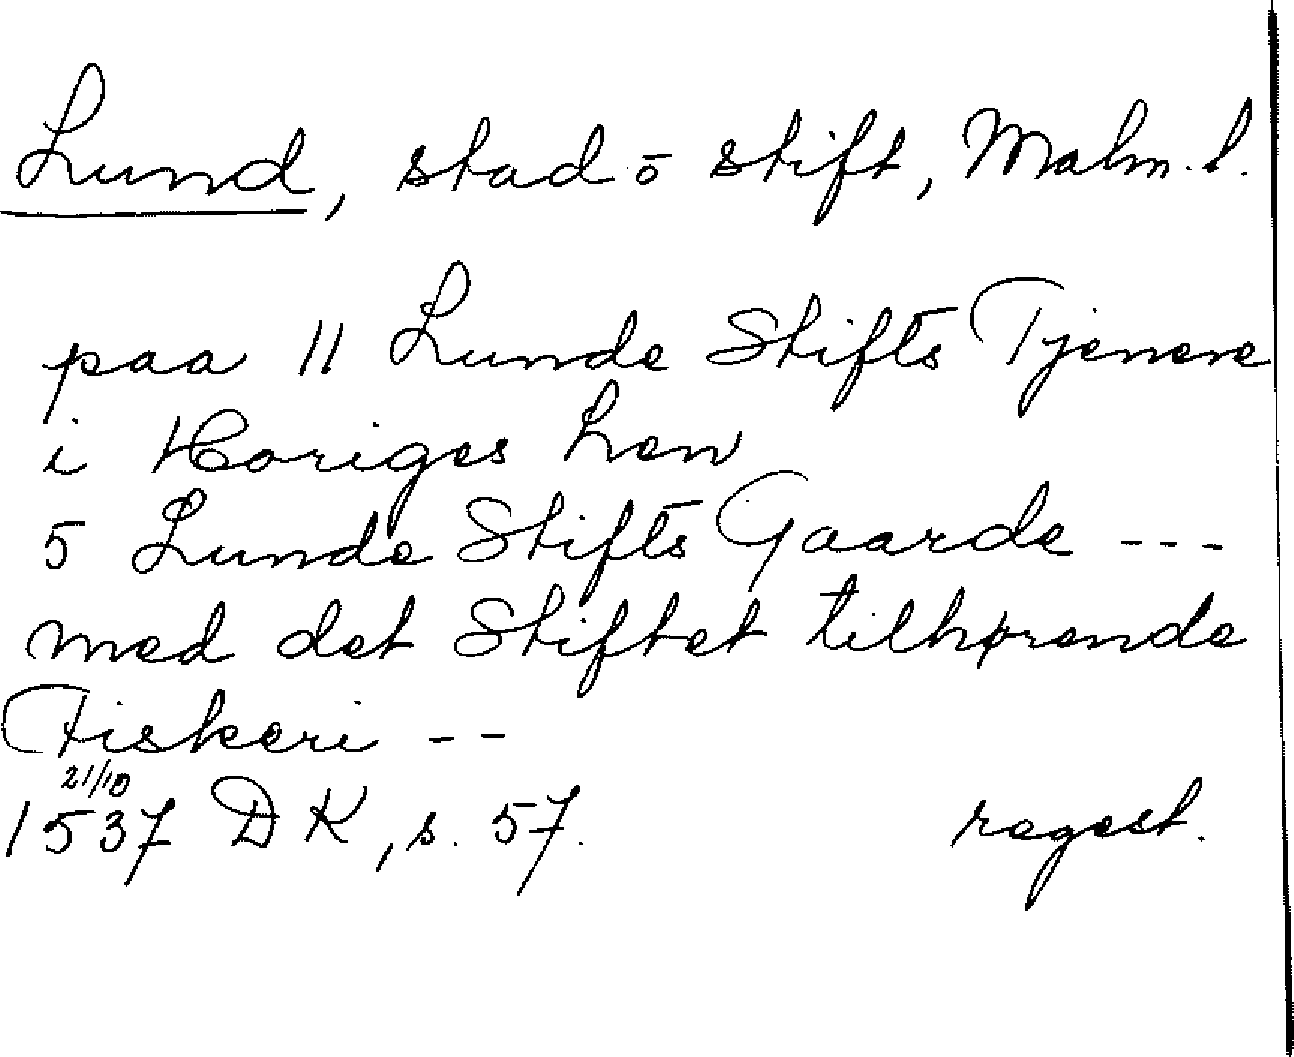 Lund, stad o stift, Malm. l.
paa 11 Lunde Stifts Tjenere
i Horiges Len
5 Lunde Stifts Gaarde ---
med det Stiftet tilhørende
Fiskeri --
21/10
1537 DK, s. 57. regest.